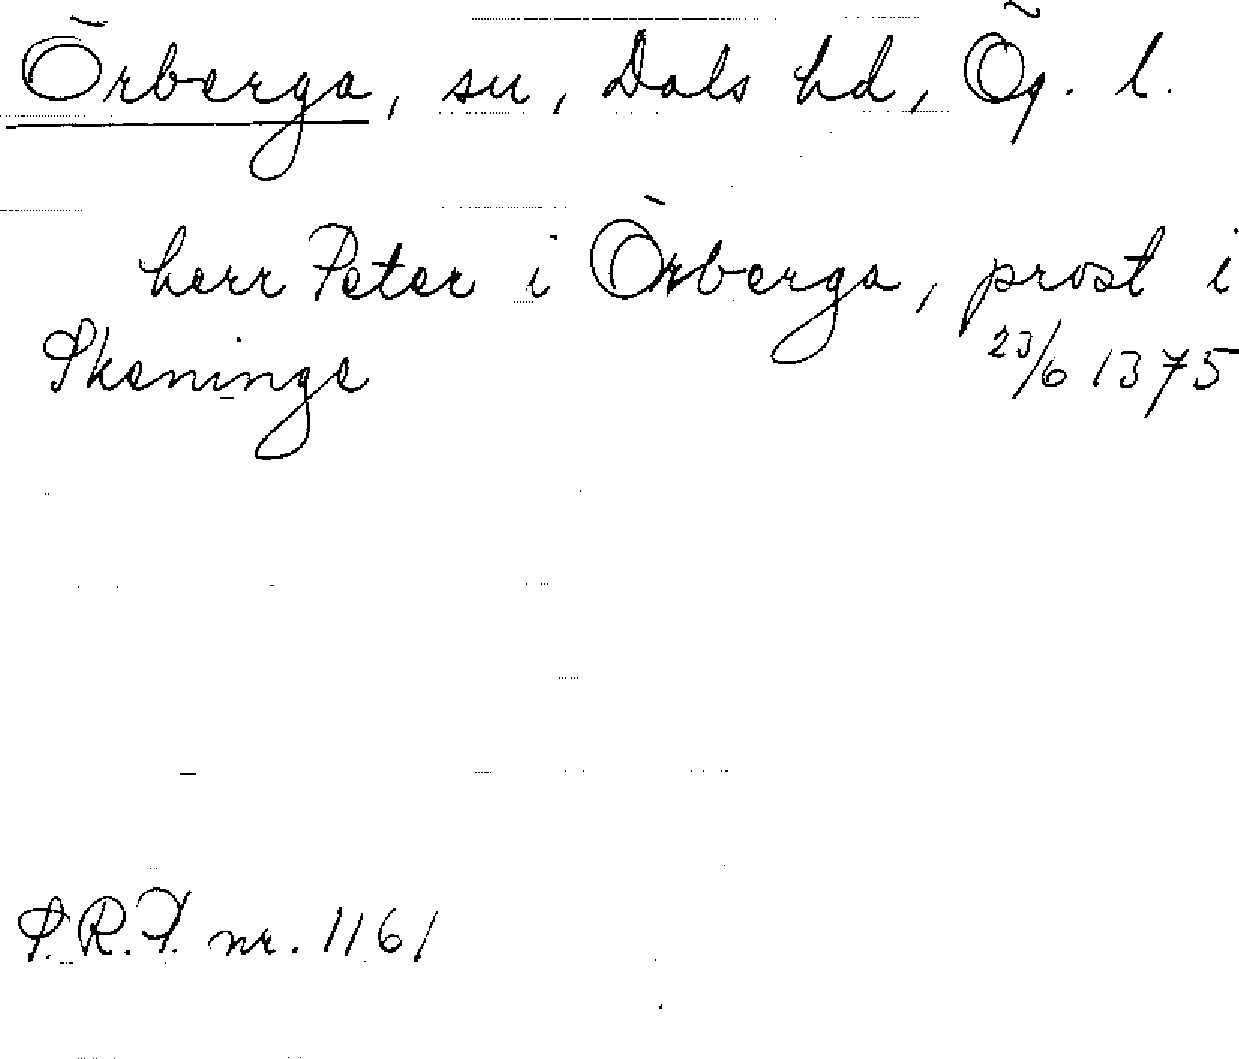 Örberga, sn, Dals hd, Ög. l.
herr Peter i Örberga, prost i
Skeninge 23/6 1375
S.R.P. nr. 1161